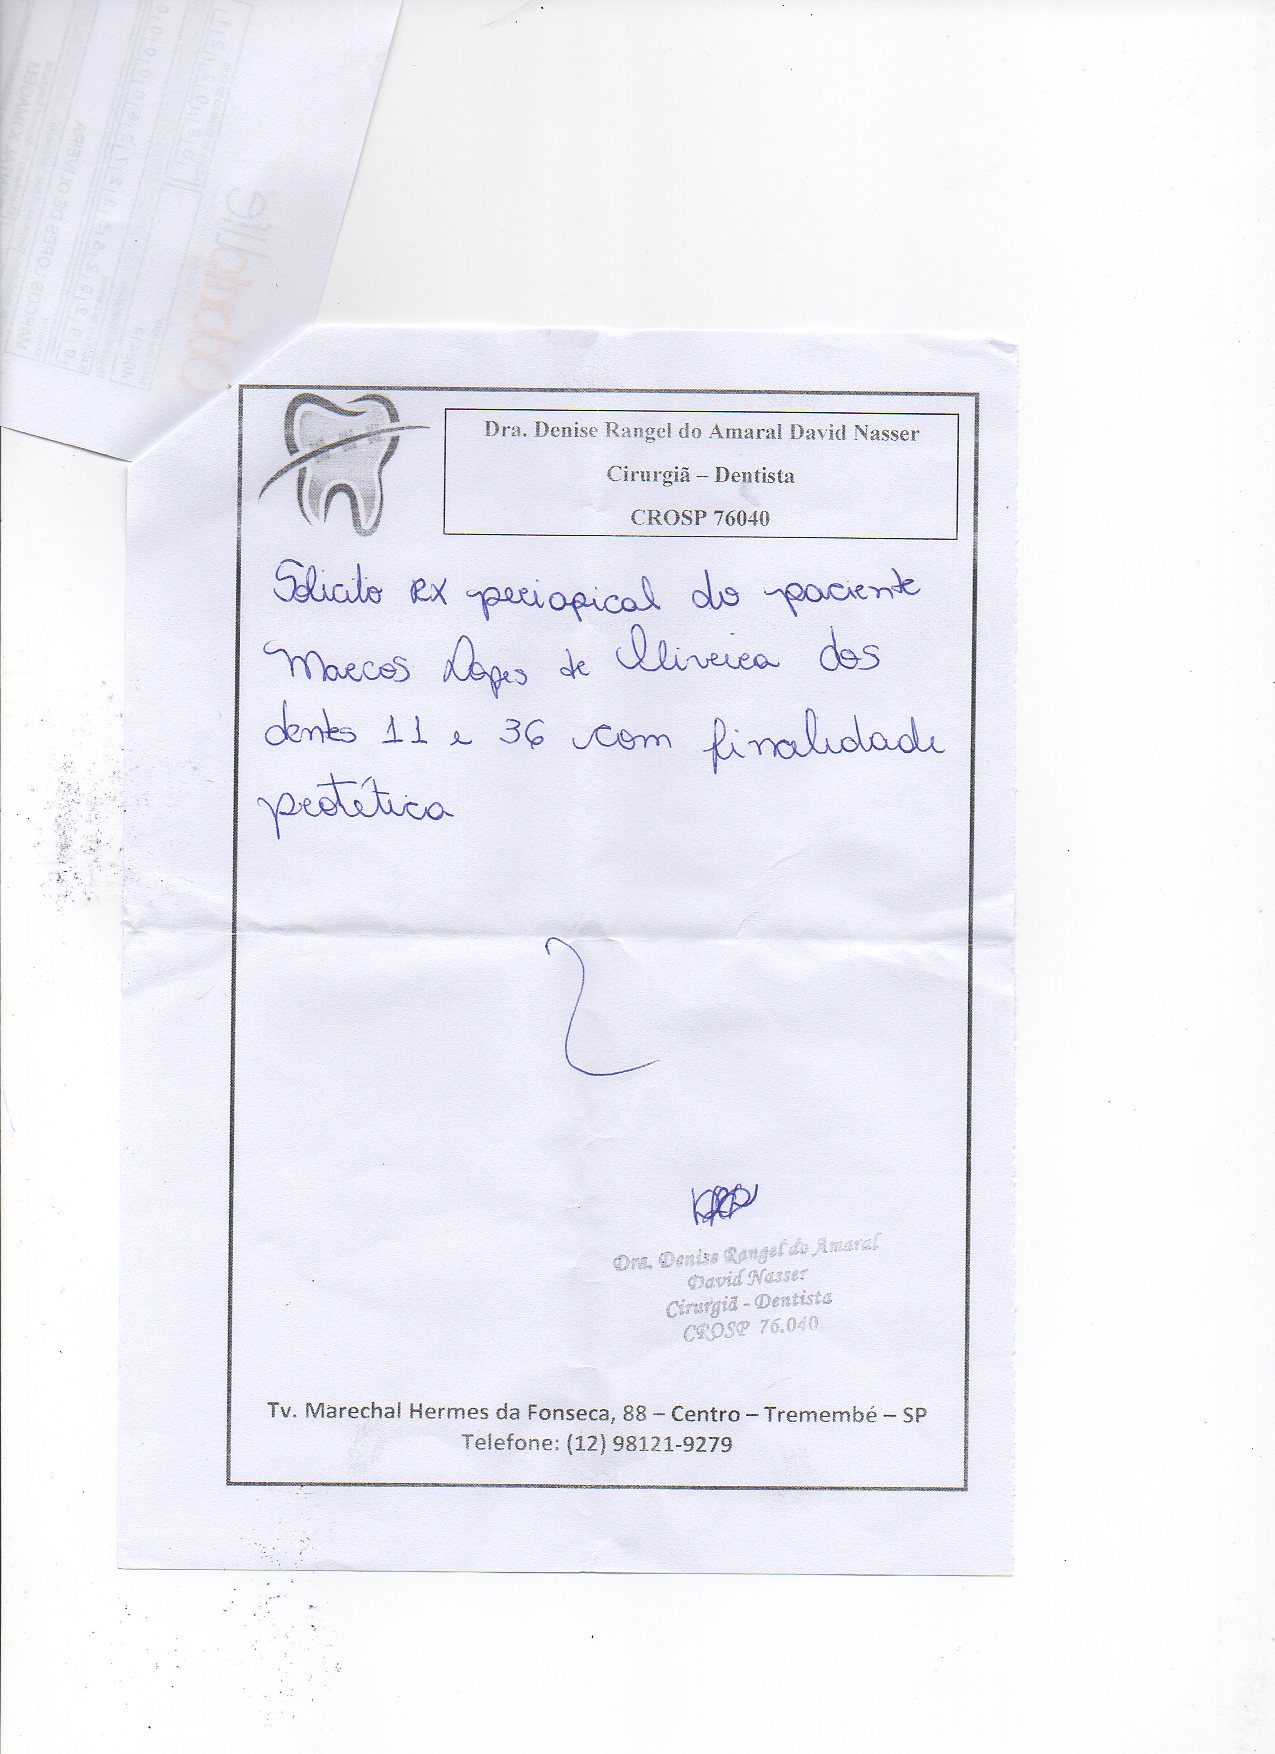 Dra. Denise Rangel do Amaral David Nasser
Cirurgiã – Dentista
CROSP 76040
Solicito RX periapical do paciente
Marcos Lopes de Oliveira dos
dentes 11 e 36 com finalidade
protética
Dra. Denise Rangel do Amaral
David Nasser
Cirurgiã - Dentista
CROSP 76.040
Tv. Marechal Hermes da Fonseca, 88 – Centro – Tremembé – SP
Telefone: (12) 98121-9279
OdontoLife
MARCOS LOPES DE OLIVEIRA